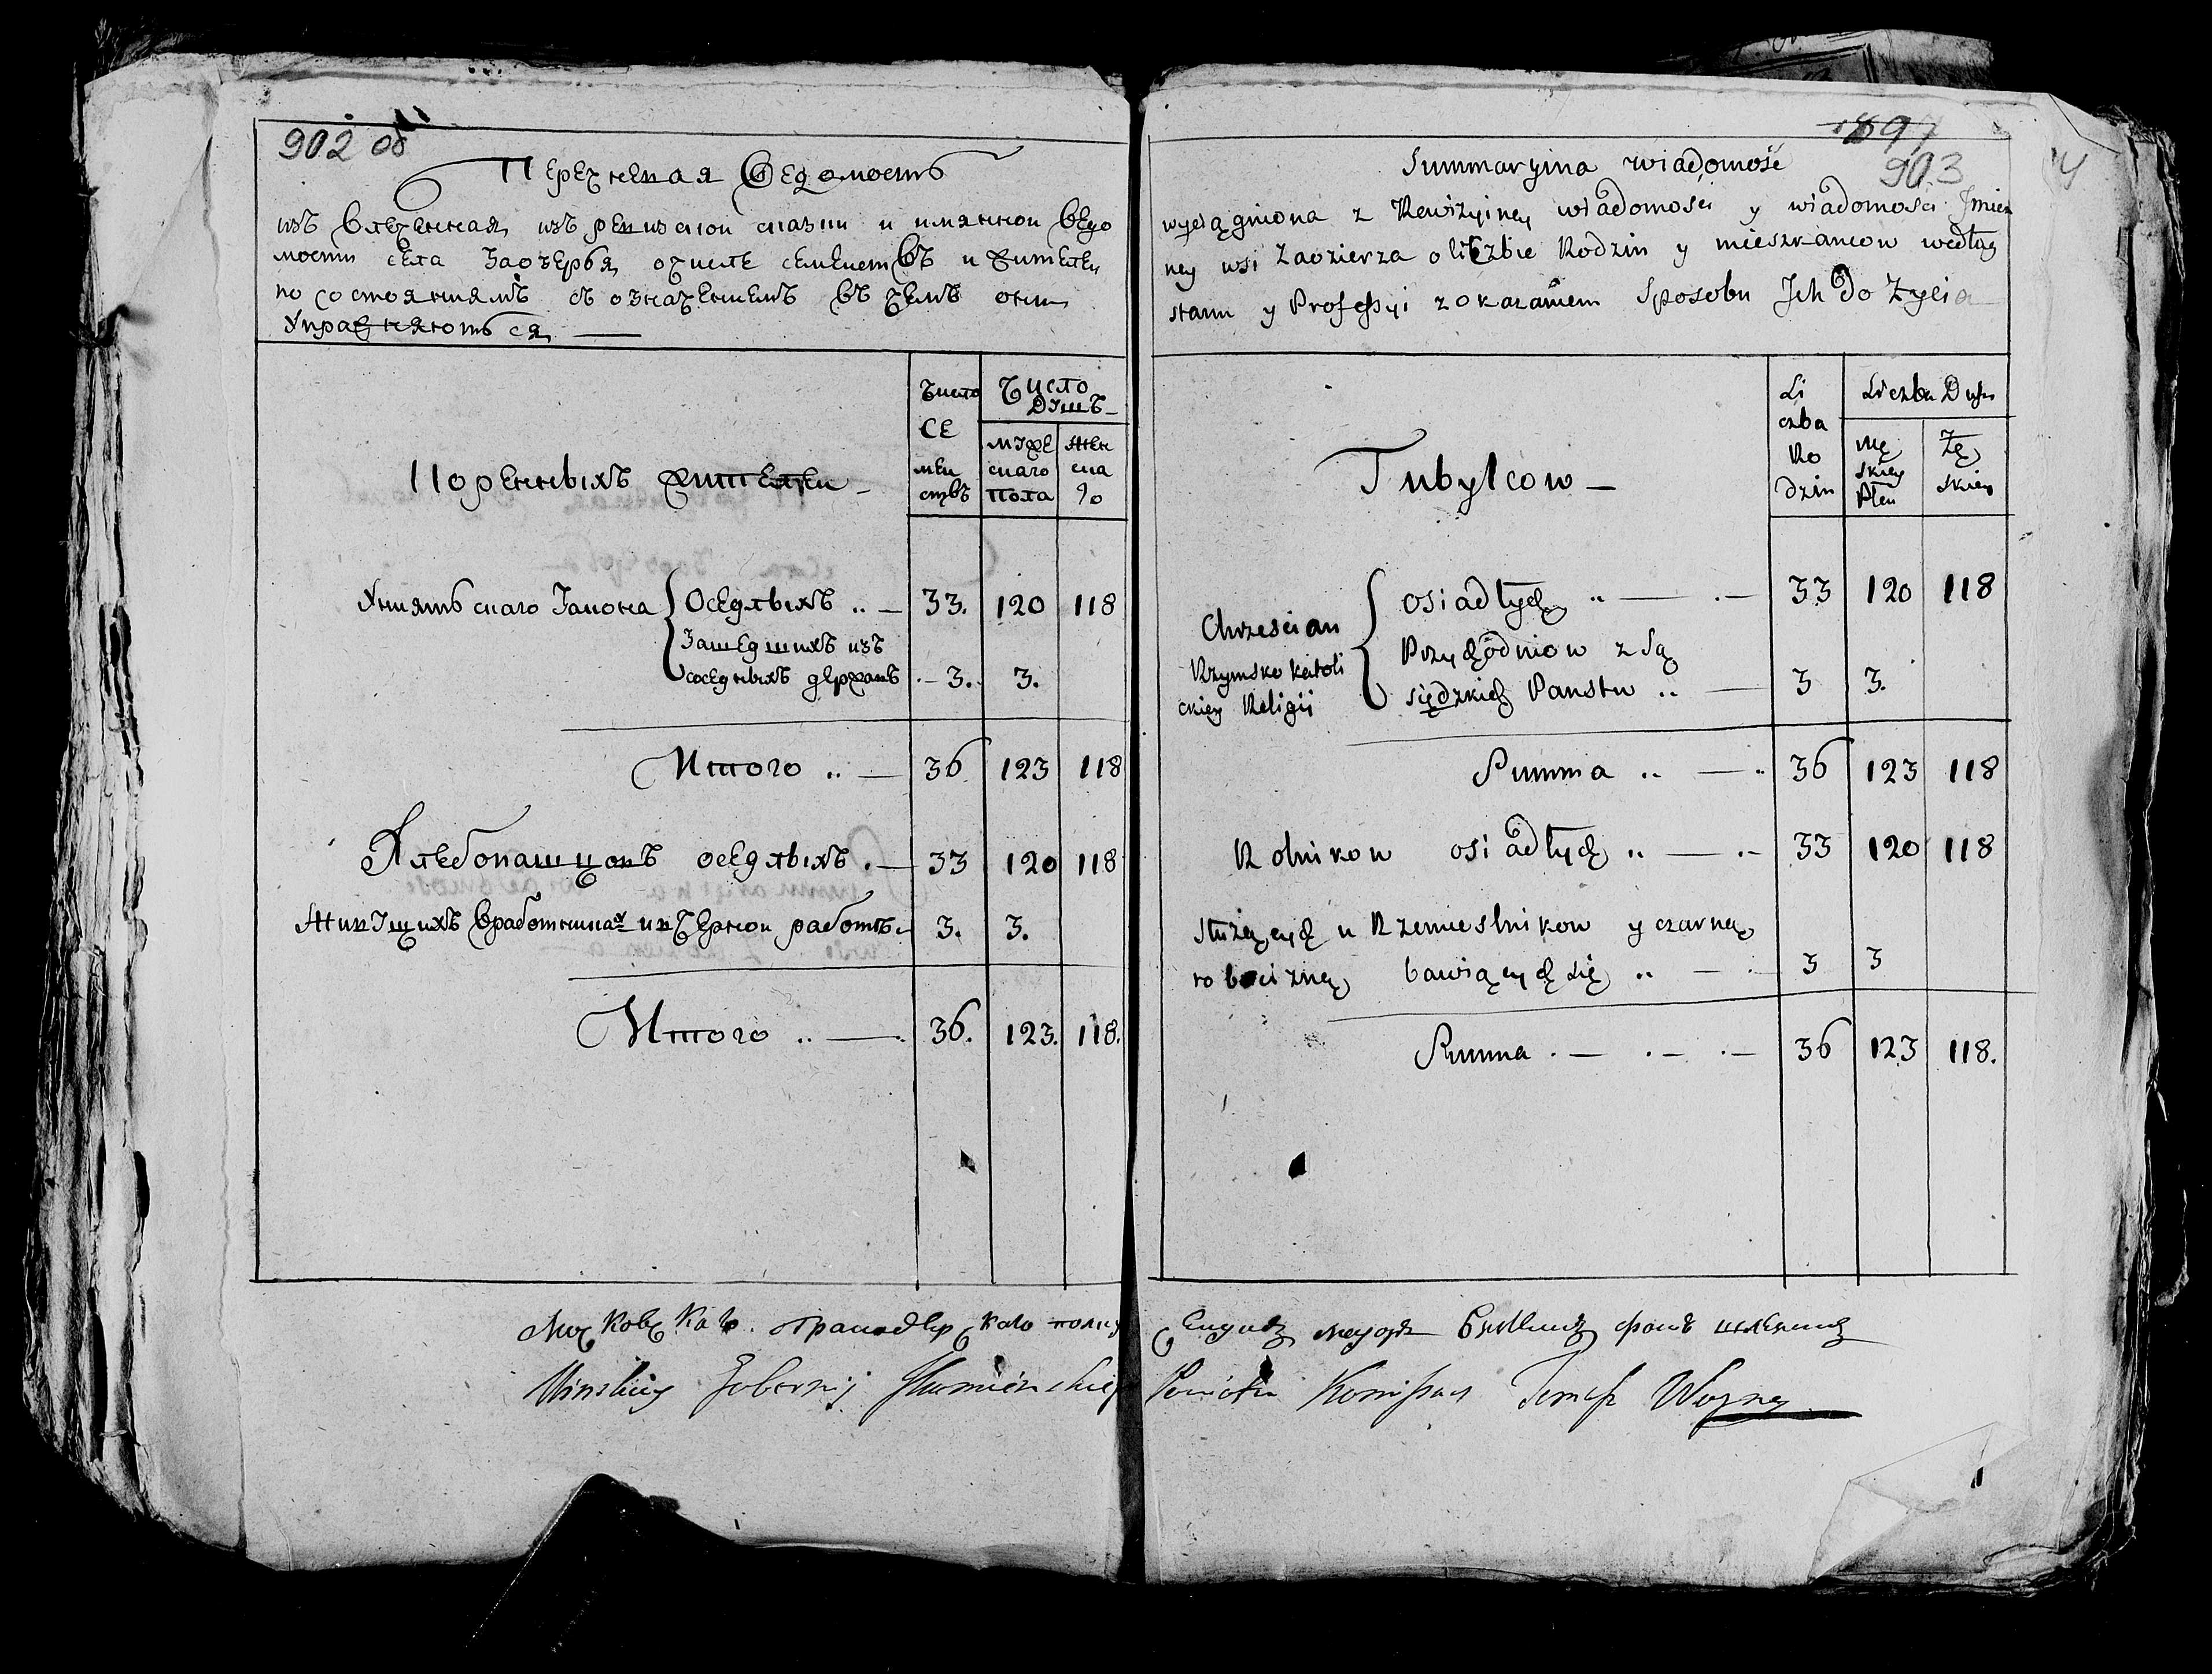 902 об
Перечневая Ведомость
извлеченная изъ ревизской сказки и имянной ведо
мости села Заозерья, о числе семействъ и жителей
по состояниямъ съ означениемъ въ чемъ они
упражняются
Число
Число
душъ
се
мей
ствъ
муже
скаго
пола
жен
ска
го
Коренныхъ жителей
Униятскаго Закона
Оседлыхъ .. — 33. 120 118
Зашедшихъ изъ
соседныхъ державъ . — 3. 3.
Итого .. — 36 123 118
Хлебопашцовъ оседлыхъ . — 33 120 118
Живущихъ в работникахъ и в черной работе 3. 3.
Итого .. — 36. 123. 118.
1897
903
Summaryina wiadomość
wyciągniona z Rewizyiney wiadomości y wiadomości Jmien
ney wsi Zaozierza o liczbie Rodzin y mieszkancow według
stanu y Professyi z okazaniem Sposobu Jch do Życia
Li
czba
Ro
dzin
Liczba Dusz
Mę
skiey
Płeu
Żę
skiey
Tubylcow —
Chrzescian
Rzymsko katoli
ckiey Religii
osiadłych .. — . — 33 120 118
Przychodniow z Są
siędzkich Panstw .. — 3 3.
Summa .. — .. 36 123 118
Rolnikow osiadłych .. — .. 33 120 118
służących u Rzemieslnikow y czarną
robocizną bawiących się .. — . 3 3
Summa . — . — . — 36 123 118.
Московскаго гранадерскаго полку
Minskiey Gubernij Jhumińskiego Powiatu